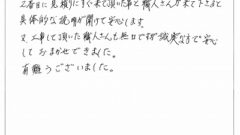 2番目に見積りにすぐ来て頂いた事と職人さんが来て下さると
具体的な説明が聞けて安心します。
又、工事して頂いた職人さんも無口ですが誠実な方で安心
しておまかせできました。
有難うございました。